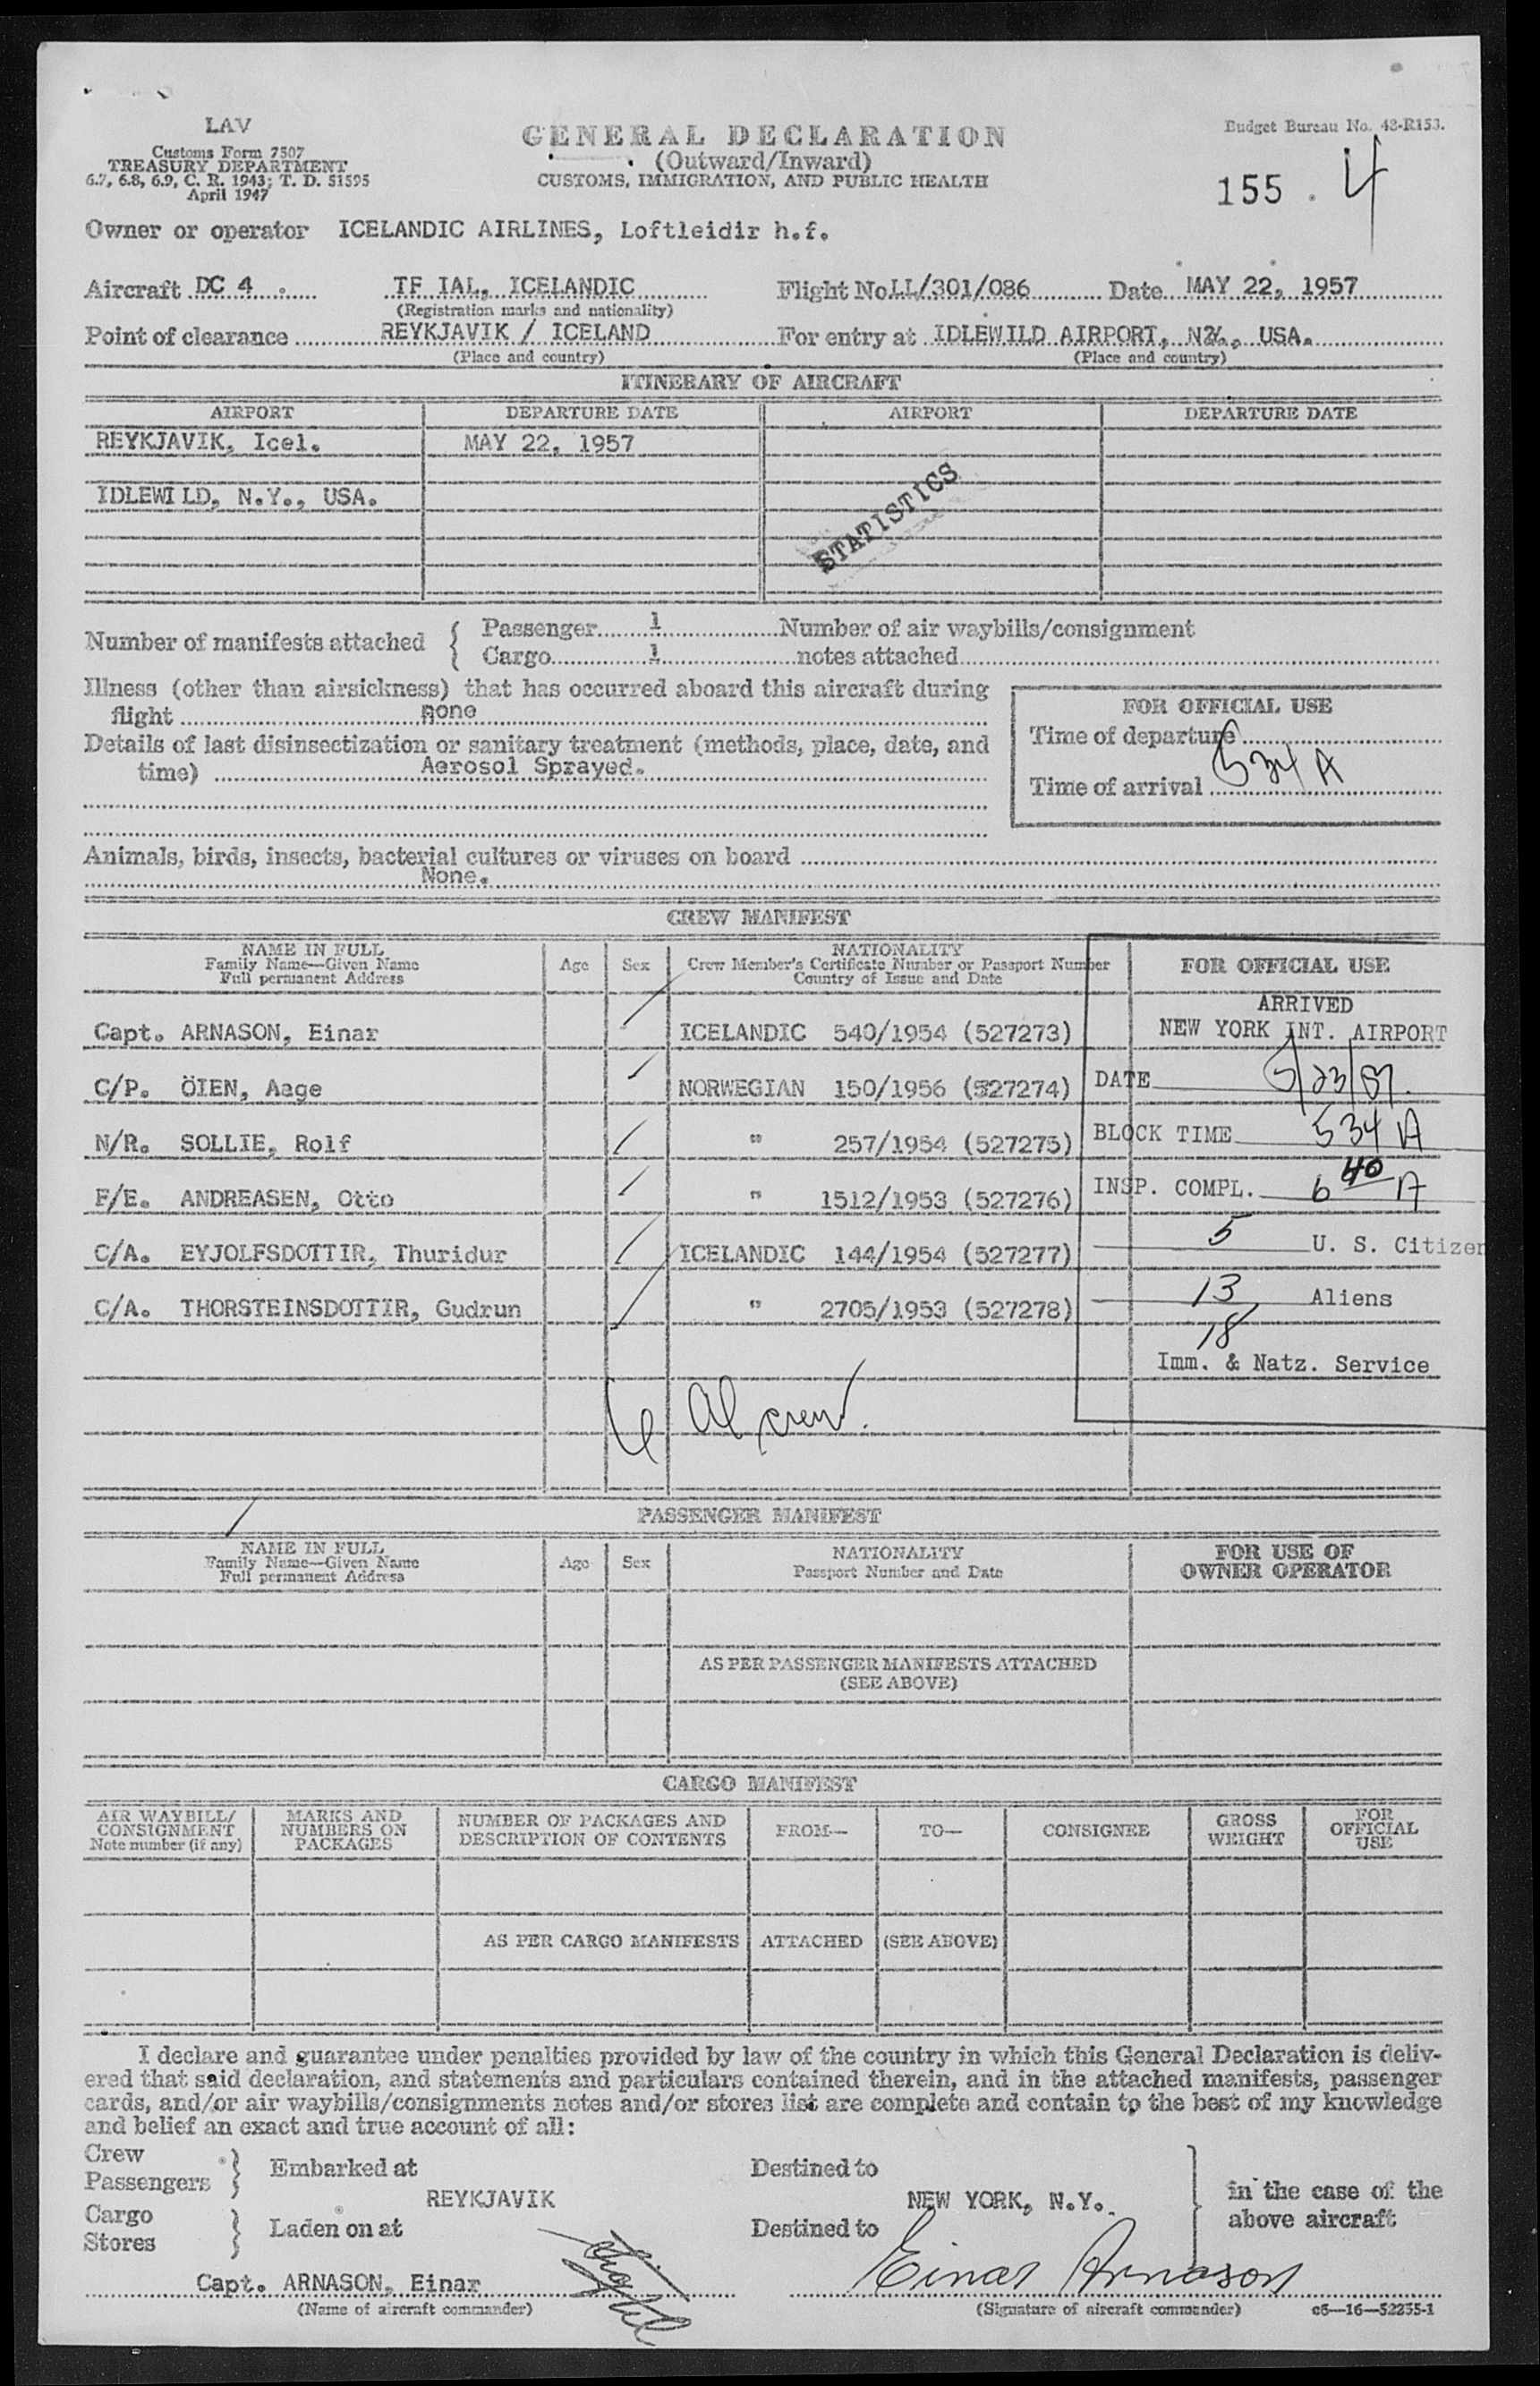 LAV
Customs Form 7507
TREASURY DEPARTMENT
6.7, 6.8, 6.9, C. R. 1943; T. D. 51595
April 1947
GENERAL DECLARATION
(Outward/Inward)
CUSTOMS, IMMIGRATION, AND PUBLIC HEALTH
Budget Bureau No. 48-R153.
155 . 4
Owner or operator ICELANDIC AIRLINES, Loftleidir h.f.
Aircraft DC 4 . TF IAL, ICELANDIC Flight No. LL/301/086 Date MAY 22, 1957
(Registration marks and nationality)
Point of clearance REYKJAVIK / ICELAND For entry at IDLEWILD AIRPORT, NY., USA.
(Place and country) (Place and country)
ITINERARY OF AIRCRAFT
AIRPORT DEPARTURE DATE AIRPORT DEPARTURE DATE
REYKJAVIK, Icel. MAY 22, 1957
IDLEWILD, N.Y., USA.
STATISTICS
Number of manifests attached { Passenger 1 Number of air waybills/consignment
Cargo 1 notes attached
Illness (other than airsickness) that has occurred aboard this aircraft during
flight none
Details of last disinsectization or sanitary treatment (methods, place, date, and
time) Aerosol Sprayed.
FOR OFFICIAL USE
Time of departure
Time of arrival 534 A
Animals, birds, insects, bacterial cultures or viruses on board
None.
CREW MANIFEST
NAME IN FULL
Family Name—Given Name
Full permanent Address
Age Sex
NATIONALITY
Crew Member's Certificate Number or Passport Number
Country of Issue and Date
FOR OFFICIAL USE
Capt. ARNASON, Einar ICELANDIC 540/1954 (527273)
C/P. ÖIEN, Aage NORWEGIAN 150/1956 (527274)
N/R. SOLLIE, Rolf " 257/1954 (527275)
F/E. ANDREASEN, Otto " 1512/1953 (527276)
C/A. EYJOLFSDOTTIR, Thuridur ICELANDIC 144/1954 (527277)
C/A. THORSTEINSDOTTIR, Gudrun " 2705/1953 (527278)
6 Al crew.
ARRIVED
NEW YORK INT. AIRPORT
DATE 5/23/57.
BLOCK TIME 534 A
INSP. COMPL. 6 40 A
5 U. S. Citizen
13 Aliens
18
Imm. & Natz. Service
PASSENGER MANIFEST
NAME IN FULL
Family Name—Given Name
Full permanent Address
Age Sex
NATIONALITY
Passport Number and Date
FOR USE OF
OWNER OPERATOR
AS PER PASSENGER MANIFESTS ATTACHED
(SEE ABOVE)
CARGO MANIFEST
AIR WAYBILL/
CONSIGNMENT
Note number (if any)
MARKS AND
NUMBERS ON
PACKAGES
NUMBER OF PACKAGES AND
DESCRIPTION OF CONTENTS
FROM— TO— CONSIGNEE
GROSS
WEIGHT
FOR
OFFICIAL
USE
AS PER CARGO MANIFESTS ATTACHED (SEE ABOVE)
I declare and guarantee under penalties provided by law of the country in which this General Declaration is deliv-
ered that said declaration, and statements and particulars contained therein, and in the attached manifests, passenger
cards, and/or air waybills/consignments notes and/or stores list are complete and contain to the best of my knowledge
and belief an exact and true account of all:
Crew
Passengers } Embarked at Destined to
REYKJAVIK NEW YORK, N.Y.
Cargo
Stores } Laden on at Destined to
in the case of the
above aircraft
Capt. ARNASON, Einar Einar Arnason
(Name of aircraft commander) (Signature of aircraft commander) c6—16—52235-1